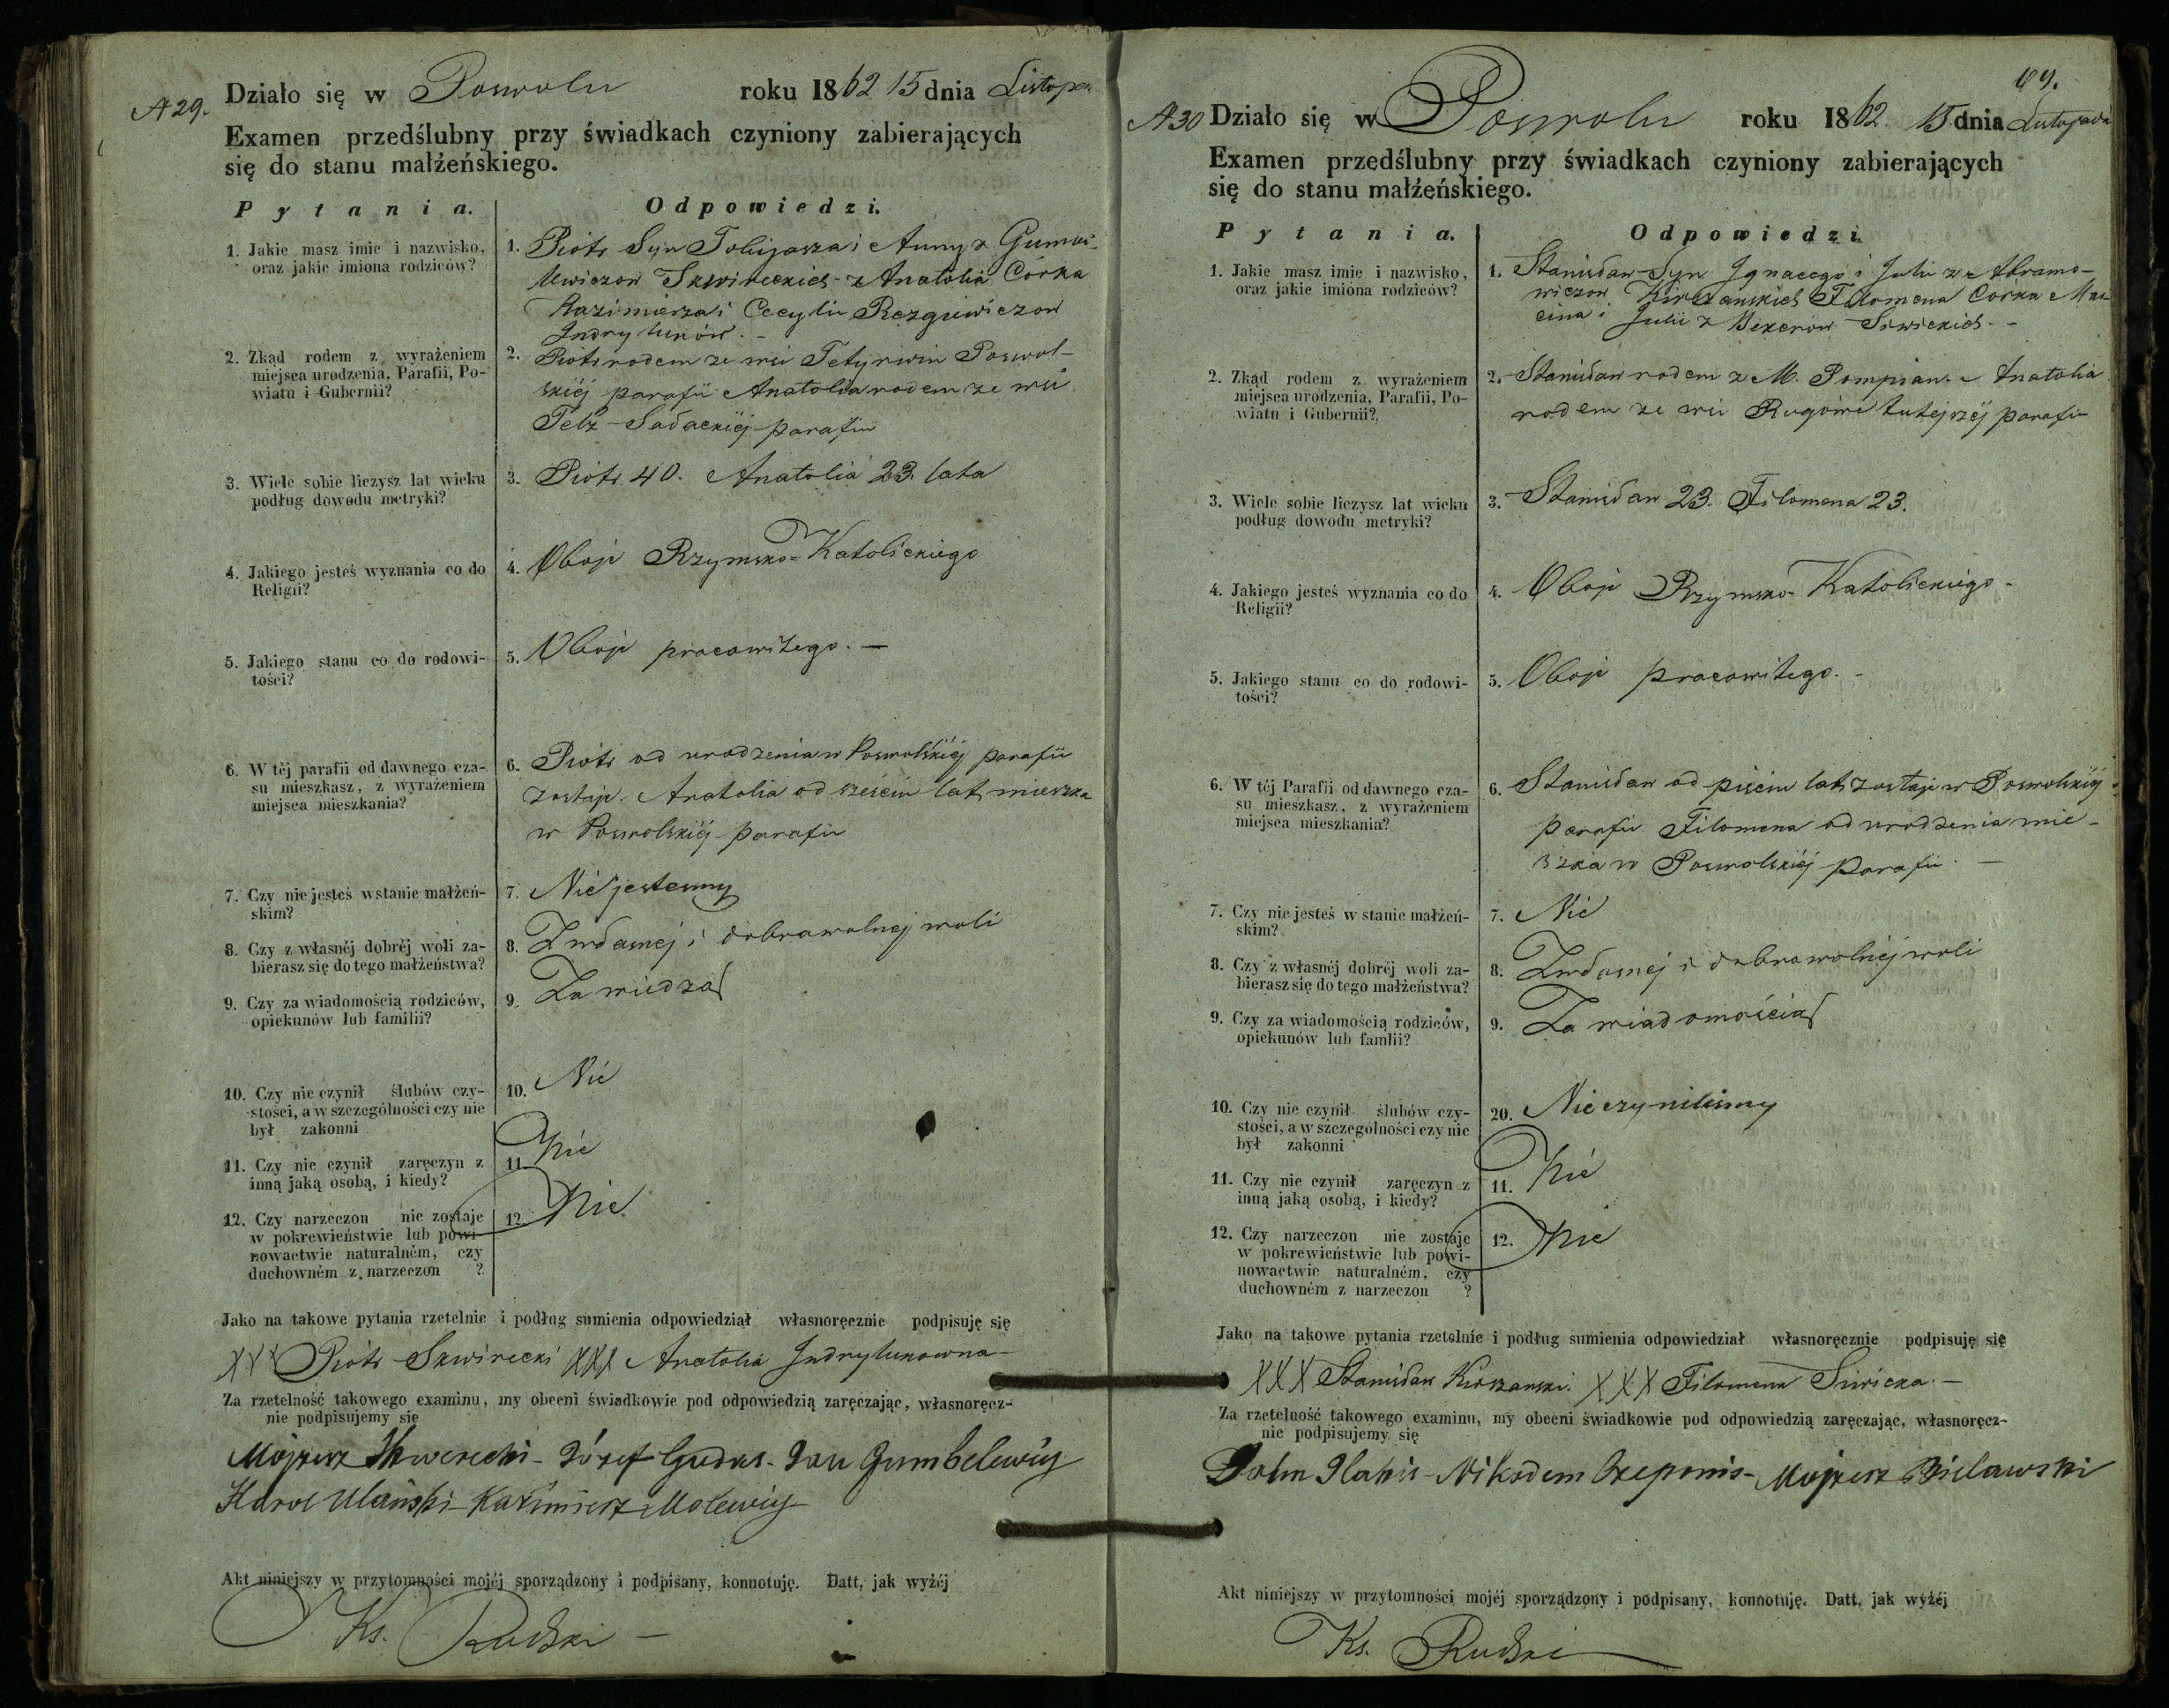 A 29.
Działo się w Poswolu roku 1862 15 dnia Listopa
Examen przedślubny przy świadkach czyniony zabierających
się do stanu małżeńskiego.
Pytania.
Odpowiedzi.
1. Jakie masz imie i nazwisko,
oraz jakie imiona rodziców?
1. Piotr Syn Tobijasza i Anny z
Skwireckich z Anatolia Córka
Kazimierza i Cecylii
2. Zkąd rodem z wyrażeniem
miejsca urodzenia, Parafii, Po-
wiatu i Gubernii?
2. Piotr rodem ze wsi Poswol-
skiéj parafii Anatolia rodem ze wsi
parafii
3. Wiele sobie liczysz lat wieku
podług dowodu metryki?
3. Piotr 40. Anatolia 23. lata
4. Jakiego jesteś wyznania co do
Religii?
4. Oboje Rzymsko-Katolickiego
5. Jakiego stanu co do rodowi-
tości?
5. Oboje pracowitego. —
6. W téj parafii od dawnego cza-
su mieszkasz, z wyrażeniem
miejsca mieszkania?
6. Piotr od urodzenia w Poswolskiéj parafii
zostaje. Anatolia od sześciu lat mieszka
w Poswolskiéj parafii
7. Czy nie jesteś w stanie małżeń-
skim?
7. Nie jestesmy
8. Czy z własnéj dobréj woli za-
bierasz się do tego małżeństwa?
8. Zwłasnej i dobrawolnej woli
9. Czy za wiadomością rodziców,
opiekunów lub familii?
9. Za wiedzą
10. Czy nie czynił ślubów czy-
stości, a w szczególności czy nie
był zakonni
10. Nie
11. Czy nie czynił zaręczyn z
inną jaką osobą, i kiedy?
11. Nie
12. Czy narzeczon nie zostaje
w pokrewieństwie lub powi-
nowactwie naturalném, czy
duchowném z narzeczon ?
12. Nie
Jako na takowe pytania rzetelnie i podług sumienia odpowiedział własnoręcznie podpisuję się
XXX Piotr Skwirecki XXX Anatolia
Za rzetelność takowego examinu, my obecni świadkowie pod odpowiedzią zaręczając, własnoręcz-
nie podpisujemy się
Mojżesz Skwerecki - Józef Gudas - Jan Gumbelewicz
Karol Ulański - Kazimierz Malewicz
Akt niniejszy w przytomności mojéj sporządzony i podpisany, konnotuję. Datt, jak wyżéj
Ks. Rudzki —
99.
A 30 Działo się w Poswolu roku 1862 15 dnia Listopada
Examen przedślubny przy świadkach czyniony zabierających
się do stanu małżeńskiego.
Pytania.
Odpowiedzi.
1. Jakie masz imie i nazwisko,
oraz jakie imiona rodziców?
1. Stanisław Syn Ignacego i Julii z Abramo-
wiczow Kirszanskich Filomena Córka Mar-
cina i Julii z Siwickich -
2. Zkąd rodem z wyrażeniem
miejsca urodzenia, Parafii, Po-
wiatu i Gubernii?
2. Stanisław rodem z M. Pompian. Anatolia
rodem ze wsi tutejszéj parafii
3. Wiele sobie liczysz lat wieku
podług dowodu metryki?
3. Stanisław 23. Filomena 23.
4. Jakiego jesteś wyznania co do
Religii?
4. Oboje Rzymsko-Katolickiego -
5. Jakiego stanu co do rodowi-
tości?
5. Oboje pracowitego. -
6. W téj Parafii od dawnego cza-
su mieszkasz, z wyrażeniem
miejsca mieszkania?
6. Stanisław od pięciu lat zostaje w Poswolskiéj
parafii Filomena od urodzenia mie-
szka w Poswolskiéj parafii. —
7. Czy nie jesteś w stanie małżeń-
skim?
7. Nie
8. Czy z własnéj dobréj woli za-
bierasz się do tego małżeństwa?
8. Zwłasnej i dobrowolnéj woli
9. Czy za wiadomością rodziców,
opiekunów lub famlii?
9. Za wiadomością
10. Czy nie czynił ślubów czy-
stości, a w szczególności czy nie
był zakonni
20. Nie czynilismy
11. Czy nie czynił zaręczyn z
inną jaką osobą, i kiedy?
11. Nie
12. Czy narzeczon nie zostaje
w pokrewieństwie lub powi-
nowactwie naturalném, czy
duchowném z narzeczon ?
12. Nie
Jako na takowe pytania rzetelnie i podług sumienia odpowiedział własnoręcznie podpisuję się
XXX Stanisław Kirszanski. XXX Filomena Siwicka. —
Za rzetelność takowego examinu, my obecni świadkowie pod odpowiedzią zaręczając, własnoręcz-
nie podpisujemy się
Nikodem Czeponis - Mojżesz Bielawski
Akt niniejszy w przytomności mojéj sporządzony i podpisany, konnotuję. Datt, jak wyżéj
Ks. Rudzki